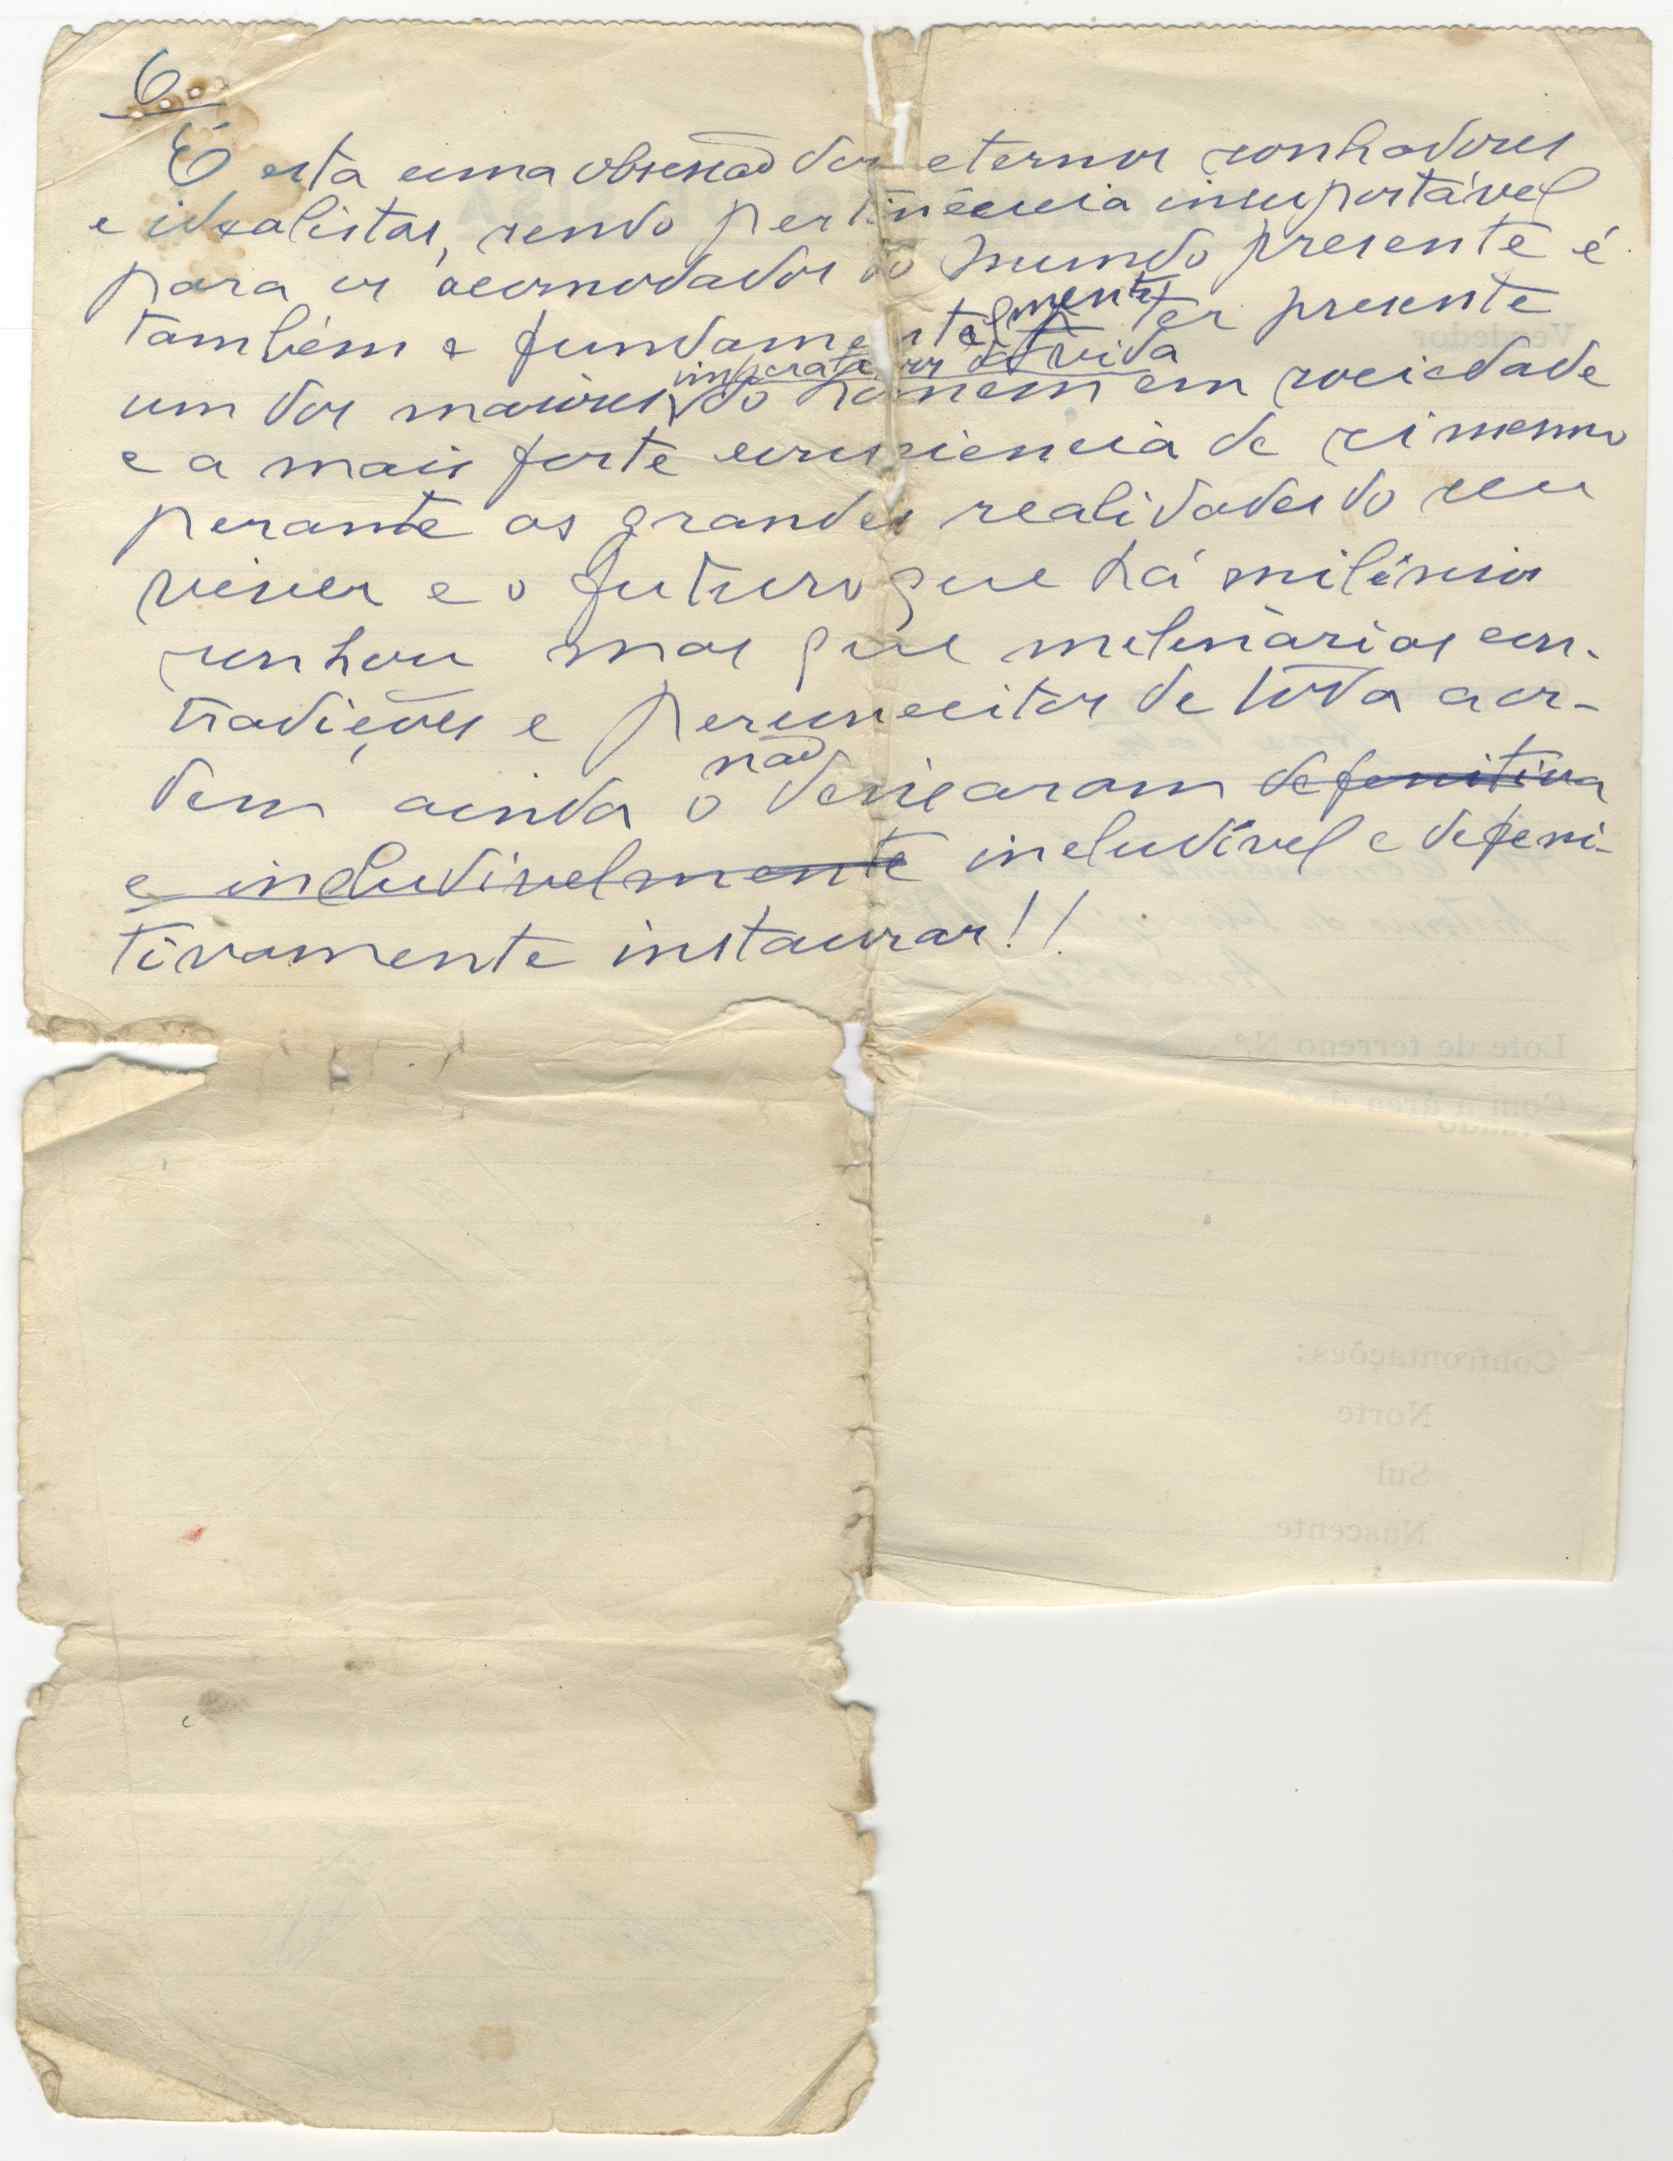 6
É esta uma obsessão dos eternos sonhadores
e idealistas, sendo pertinência insuportável
para os acomodados do mundo presente é
também e fundamentalmente ter presente
um dos maiores imperativos da vida do homem em sociedade
e a mais forte consciência de si mesmo
perante as grandes realidades do seu
viver e o futuro que há milénios
sonhou mas que milenárias con-
tradições e preconceitos de toda a or-
dem ainda o não deixaram defenitiva
e ineludivelmente ineludível e defeni-
tivamente instaurar!!
SISA
Vendedor
Lote de terreno N.º
Com a área de
Confrontações:
Norte
Sul
Nascente